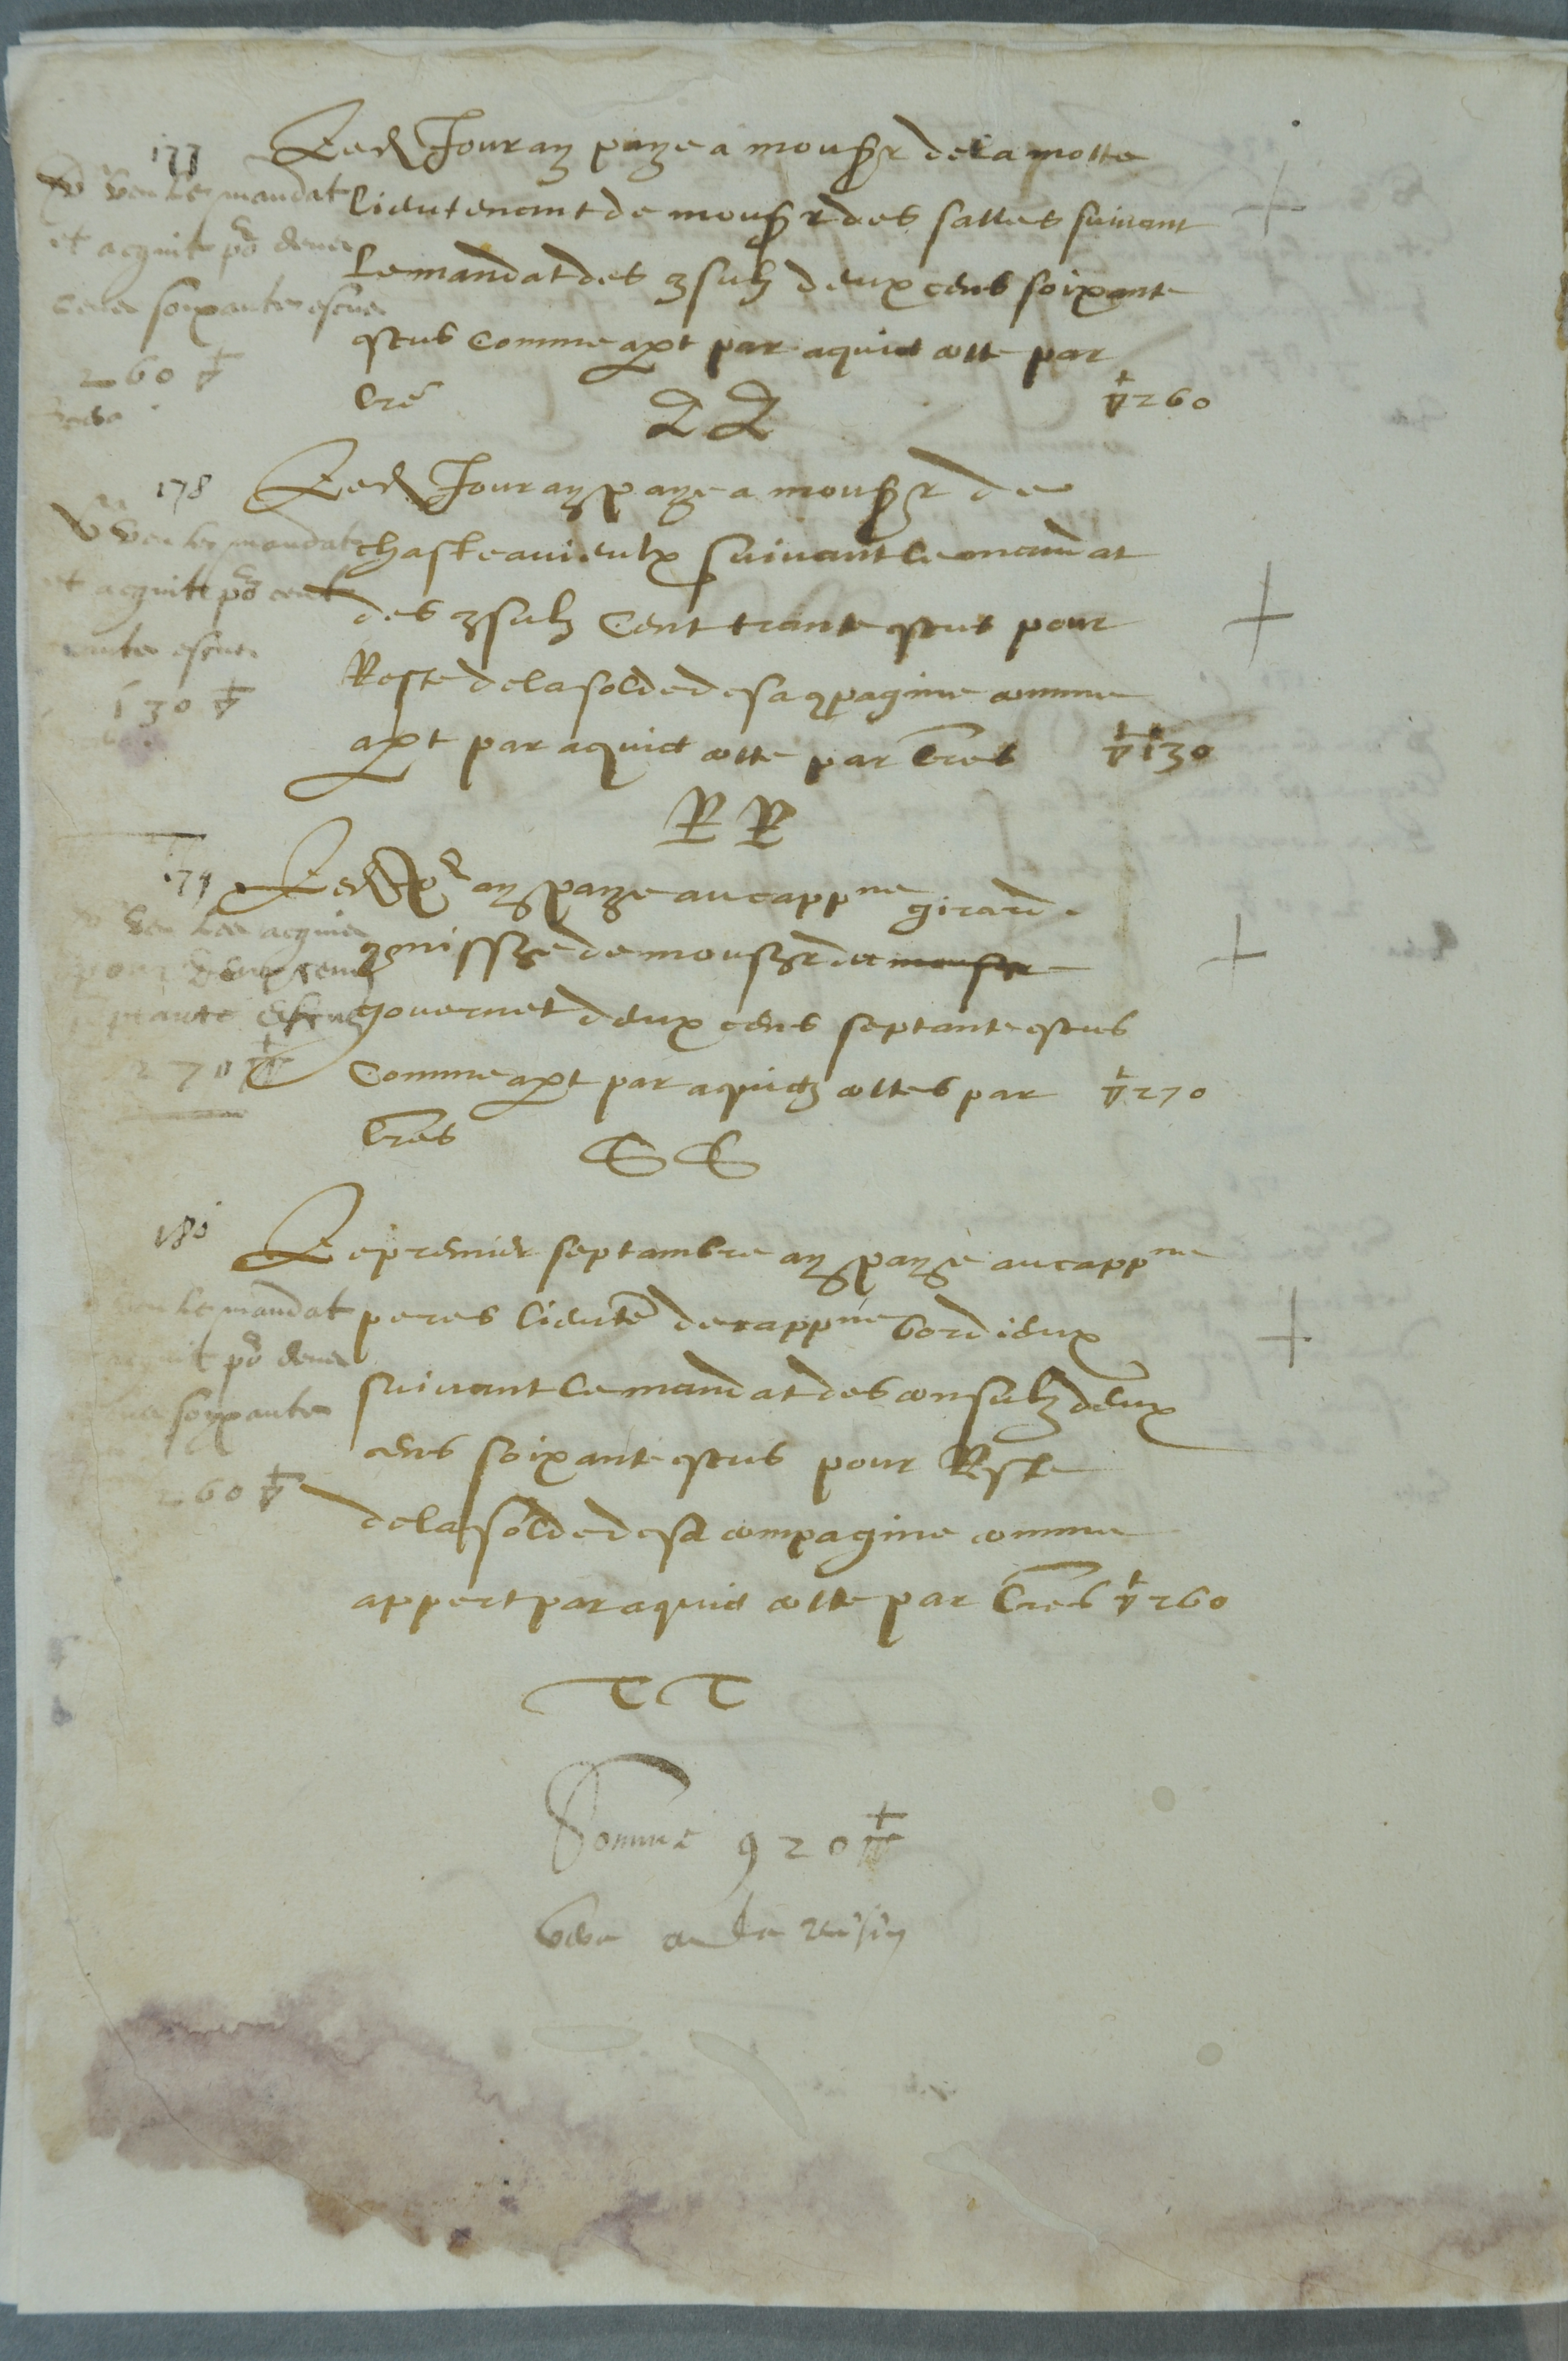 177
Led Jour ay paye a monsgr de la motte
lieutenant de monsgr des salles suivant
Le mandat des 9sulz deux cens soixante
escus comme apt par aquict cotte par
Lre QQ ▽260
Veu le mandat
et acquit po deux
cens soixante escus
260 ▽
178
Led Jour ay paye a monsgr de
chasteauvieulx suivant le mandat
des 9sulz Cent trante escus pour
Reste de la solde de sa 9pagnie comme
apt par aquict cotte par Lres ▽130
RR
Veu le mandat
et acquit po cent
trante escus
130 ▽
179
Led Jor ay paye au cappne girard
9missre de monsgr de monsgr
gouvernet deux cens septante escus
Comme apt par aquictz cottes par ▽270
Lres SS
Veu les acquis
pour deux cens
septante escus
270 ▽
180
Le premier septambre ay paye au cappne
peres lieute de cappne bordieux
suivant le mandat des consulz deux
cens soixante escus pour Reste
de la solde de sa compagnie comme
appert par aquict cotte par Lres ▽260
Veu le mandat
acquit po deux
cens soixante
260 ▽
TT
Somme 920 ▽